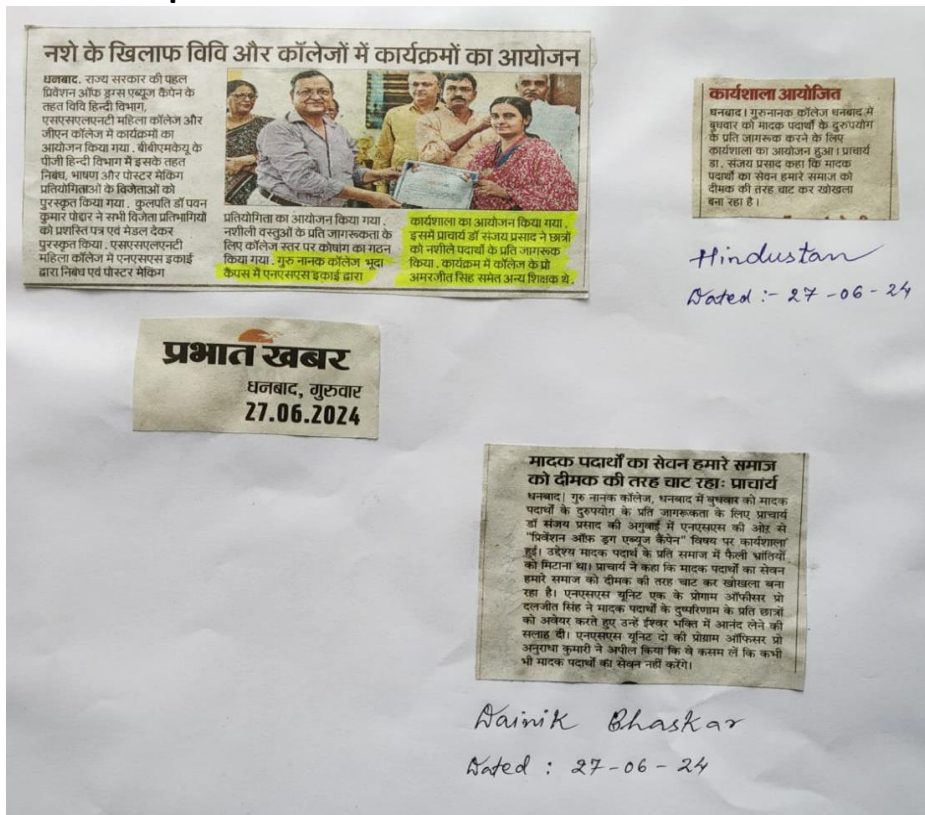 नशे के खिलाफ विवि और कॉलेजों में कार्यक्रमों का आयोजन
धनबाद. राज्य सरकार की पहल
प्रिवेंशन ऑफ ड्रग्स एब्यूज कैंपेन के
तहत विवि हिन्दी विभाग,
एसएसएलएनटी महिला कॉलेज और
जीएन कॉलेज में कार्यक्रमों का
आयोजन किया गया. बीबीएमकेयू के
पीजी हिन्दी विभाग में इसके तहत
निबंध, भाषण और पोस्टर मेकिंग
प्रतियोगिताओ के विजेताओं को
पुरस्कृत किया गया. कुलपति डॉ पवन
कुमार पोद्दार ने सभी विजेता प्रतिभागियों
को प्रशस्ति पत्र एवं मेडल देकर
पुरस्कृत किया. एसएसएलएनटी
महिला कॉलेज में एनएसएस इकाई
द्वारा निबंध एवं पोस्टर मेकिंग
प्रतियोगिता का आयोजन किया गया.
नशीली वस्तुओं के प्रति जागरूकता के
लिए कॉलेज स्तर पर कोषांग का गठन
किया गया. गुरु नानक कॉलेज भूदा
कैंपस में एनएसएस इकाई द्वारा
कार्यशाला का आयोजन किया गया.
इसमें प्राचार्य डॉ संजय प्रसाद ने छात्रों
को नशीले पदार्थों के प्रति जागरूक
किया. कार्यक्रम में कॉलेज के प्रो
अमरजीत सिंह समेत अन्य शिक्षक थे.
कार्यशाला आयोजित
धनबाद। गुरुनानक कॉलेज धनबाद में
बुधवार को मादक पदार्थों के दुरुपयोग
के प्रति जागरूक करने के लिए
कार्यशाला का आयोजन हुआ। प्राचार्य
डा. संजय प्रसाद कहा कि मादक
पदार्थों का सेवन हमारे समाज को
दीमक की तरह चाट कर खोखला
बना रहा है।
Hindustan
Dated :- 27-06-24
प्रभात खबर
धनबाद, गुरुवार
27.06.2024
मादक पदार्थों का सेवन हमारे समाज
को दीमक की तरह चाट रहा: प्राचार्य
धनबाद| गुरु नानक कॉलेज, धनबाद में बुधवार को मादक
पदार्थों के दुरुपयोग के प्रति जागरूकता के लिए प्राचार्य
डॉ संजय प्रसाद की अगुवाई में एनएसएस की ओर से
"प्रिवेंशन ऑफ़ ड्रग एब्यूज कैंपेन" विषय पर कार्यशाला
हुई। उद्देश्य मादक पदार्थ के प्रति समाज में फैली भ्रांतियों
को मिटाना था। प्राचार्य ने कहा कि मादक पदार्थों का सेवन
हमारे समाज को दीमक की तरह चाट कर खोखला बना
रहा है। एनएसएस यूनिट एक के प्रोगाम ऑफीसर प्रो
दलजीत सिंह ने मादक पदार्थों के दुष्परिणाम के प्रति छात्रों
को अवेयर करते हुए उन्हें ईश्वर भक्ति में आनंद लेने की
सलाह दी। एनएसएस यूनिट दो की प्रोग्राम ऑफिसर प्रो
अनुराधा कुमारी ने अपील किया कि वे कसम लें कि कभी
भी मादक पदार्थों का सेवन नहीं करेंगे।
Dainik Bhaskar
Dated : 27-06-24